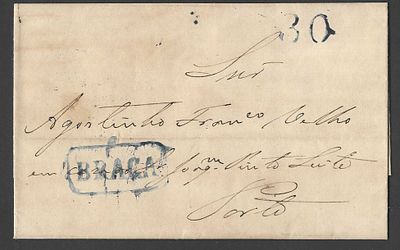 30
Snr
Agostinho Franco Velho
BRAGA
em Casa de Joaqm Pinto Leite
Porto